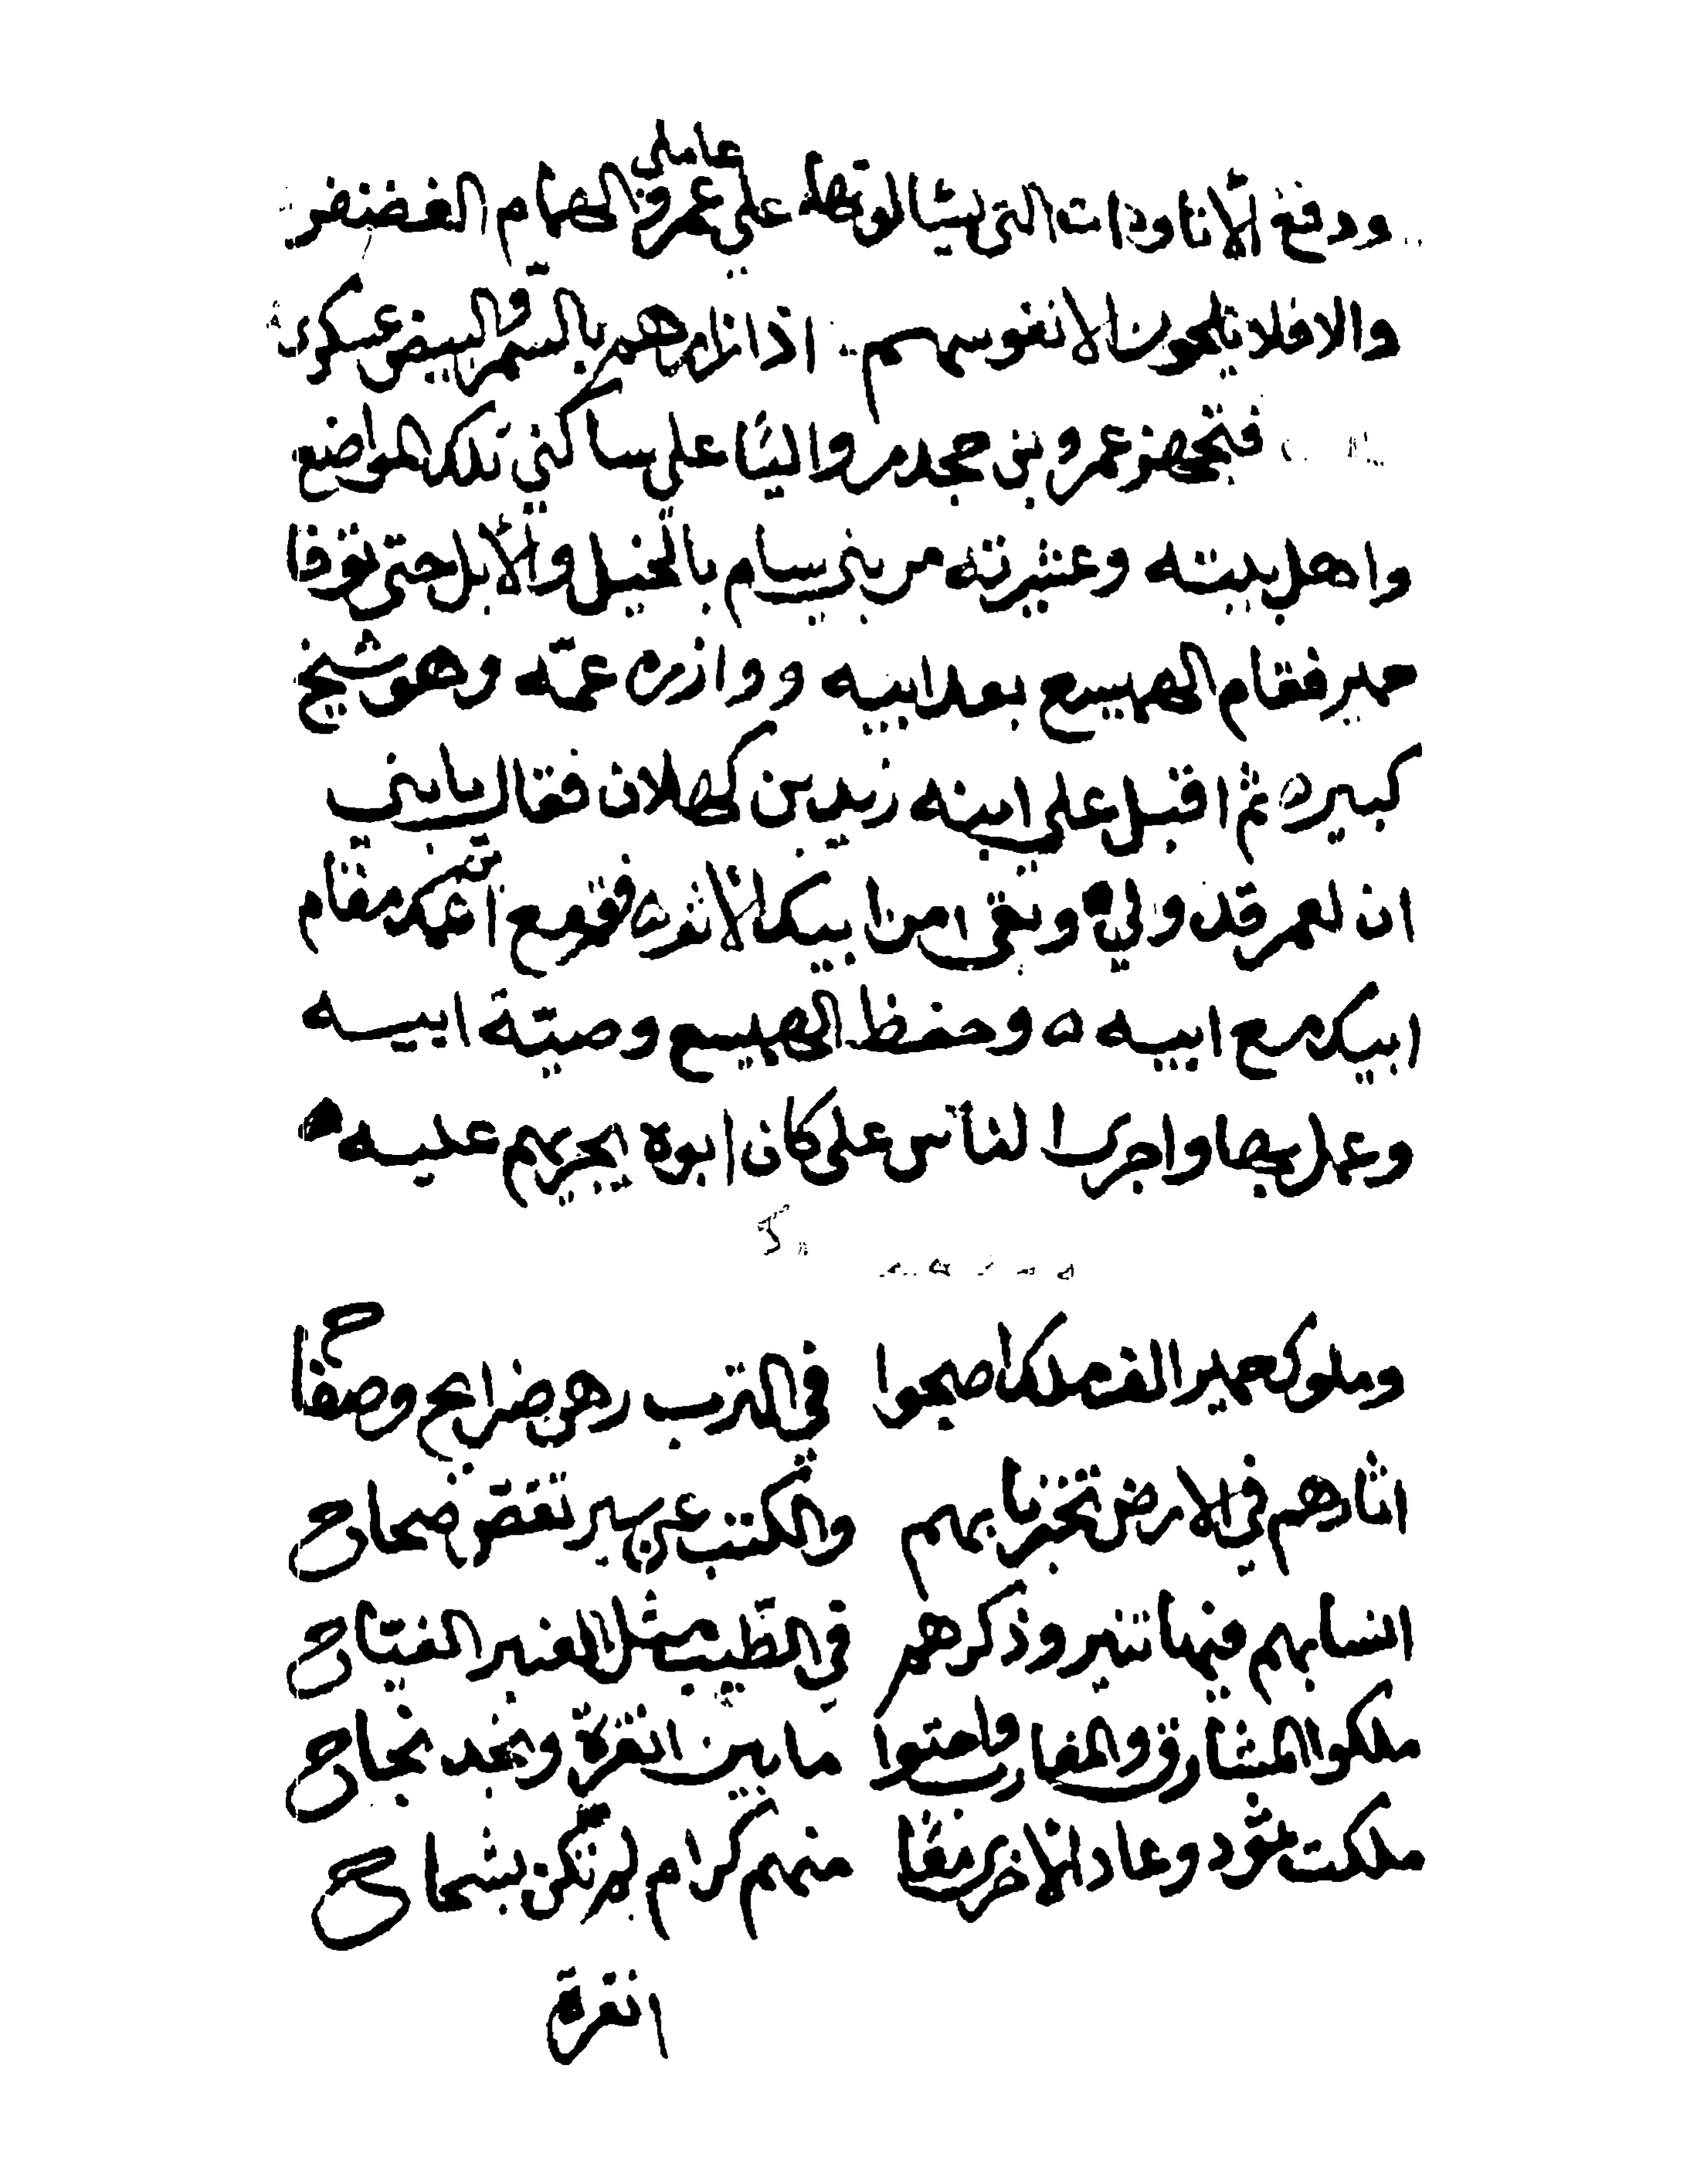 عاملي
ودفع الاتاوات التي يسالونها على عمرو الهمام الغضنفر
والا فلا يلحون الا نفوسهم اذا زارهم بالسمر والبيض عسكري
فتجهز عمرو بن حجدر واليًا على ساكني تلك المواضع
واهل بيته وعشيرته من بني سام بالخيل والابل حتى توفا
حمير فقام الهميسع بعد ابيه ووازره عمّه وهو شيخ
كبير ه ثم اقبل على ابنه زيد بن كهلان فقال يا بني
ان لعمر قد ولي وبقي من ابيك الاثره فقم مع ابن عمك مقام
ابيك مع ابيه ه وحفظ الهميسع وصيّة ابيه
وعمل بها واجرى الناس على كان ابوه يجريهم عليه
وملوك حمير الف ملك اصبحوا في الترب رهن ضرايح وصفاح
اثارهم في الارض تخبرنا بهم والكتب عن سير تقص صحاح
انسابهم فيها تنير وذكرهم في الطيب مثل العنبر الفتاح
ملكوا المشارق والمغارب واحتووا ما بين انقرة ونجد نجاح
ملكت ثمود وعاد الاخرى معًا منهم كرام لم تكن بشحاح
انقرة